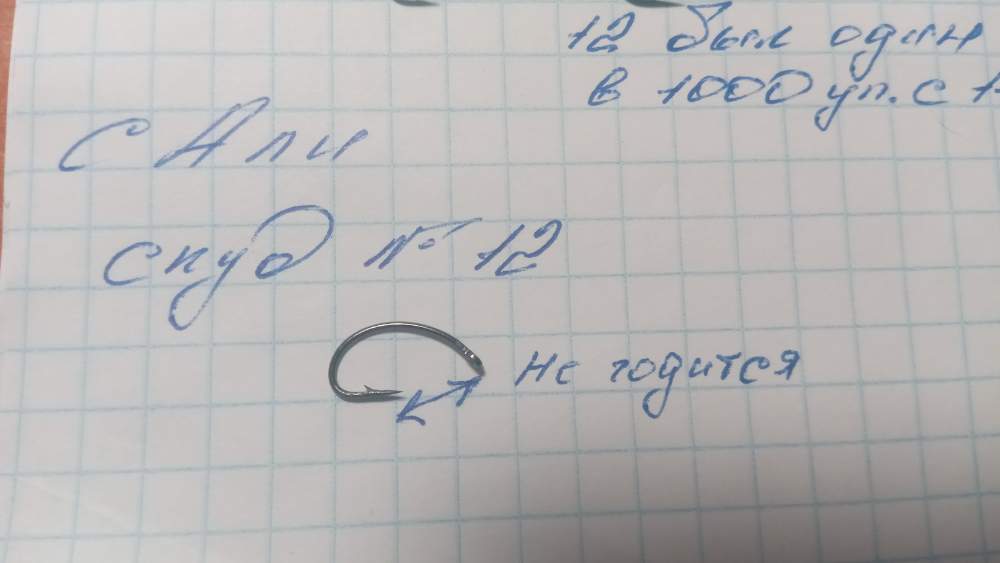 12 был один
в 1000 уп. с
с Али
скуд № 12
Не годится